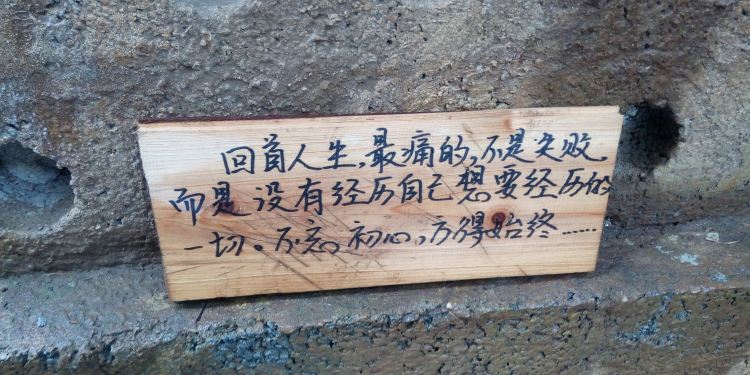 回首人生,最痛的,不是失败,
而是没有经历自己想要经历的
一切。不忘初心,方得始终……